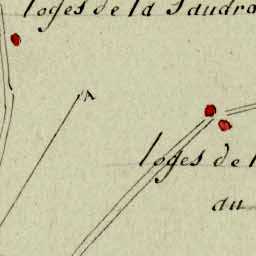 loges de la Saudra
A
loges de l
au